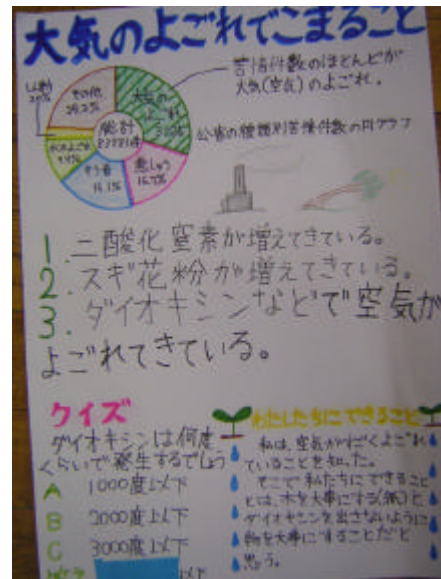 大気のよごれでこまること
苦情件数のほとんどが
大気(空気)のよごれ。
その他
大気の
よごれ
総計
悪しゅう
16.7%
そう音
16.1%
公害の種類別苦情件数の円グラフ
1.二酸化窒素が増えてきている。
2.スギ花粉が増えてきている。
3.ダイオキシンなどで空気が
よごれてきている。
クイズ
ダイオキシンは何度
くらいで発生するでしょう
A 1000度以下
B 2000度以下
C 3000度以下
以下
わたしたちにできること
私は、空気がすごくよごれ
ていることを知った。
そこで私たちにできるこ
とは、木を大事にする(紙)と
ダイオキシンを出さないように
物を大事にすることだと
思う。